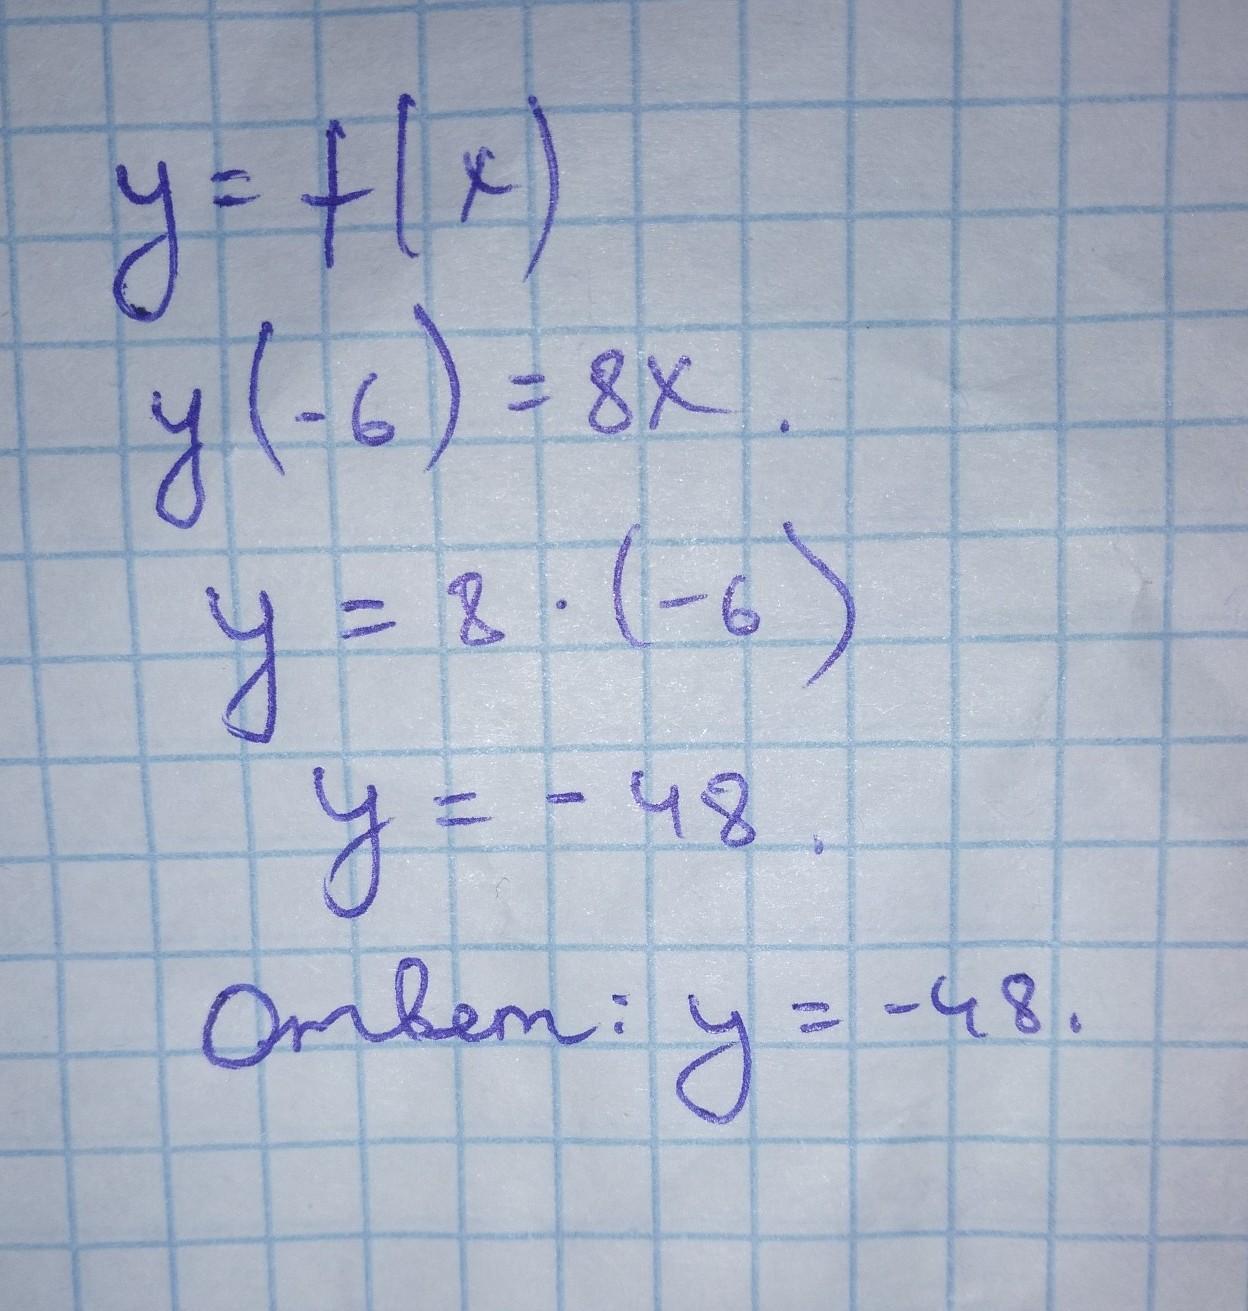 y = f(x)
y(-6) = 8x.
y = 8 · (-6)
y = - 48.
Ответ: y = -48.